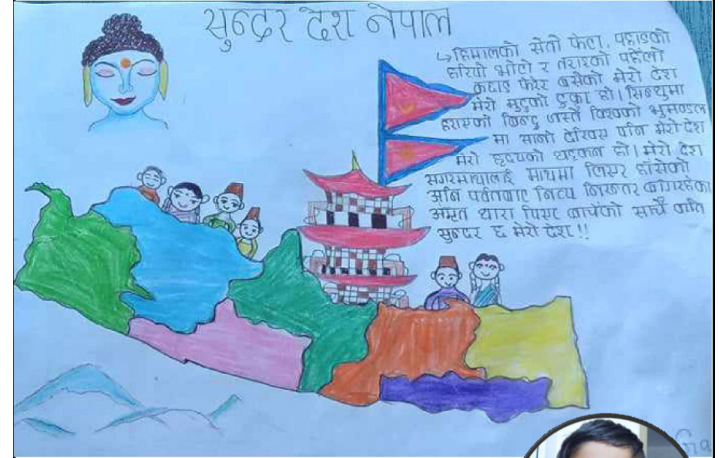 सुन्दर देश नेपाल
↳ हिमालको सेतो फेटा, पहाडको
हरियो भोटो र तराइको पहेँलो
कछाड फेरेर बसेको मेरो देश
मेरो मुटुको टुक्रा हो। सिन्धुमा
हराएको बिन्दु जस्तै विश्वको भुमण्डल
मा सानो देखिए पनि मेरो देश
मेरो हृदयको धड्कन हो। मेरो देश
सगरमाथालाई माथमा लिएर हाँसेको
अनि पर्वतबाट नित्य निरन्तर बगिरहेका
अमृत धारा पिएर बाचेको साच्चै कति
सुन्दर छ मेरो देश!!